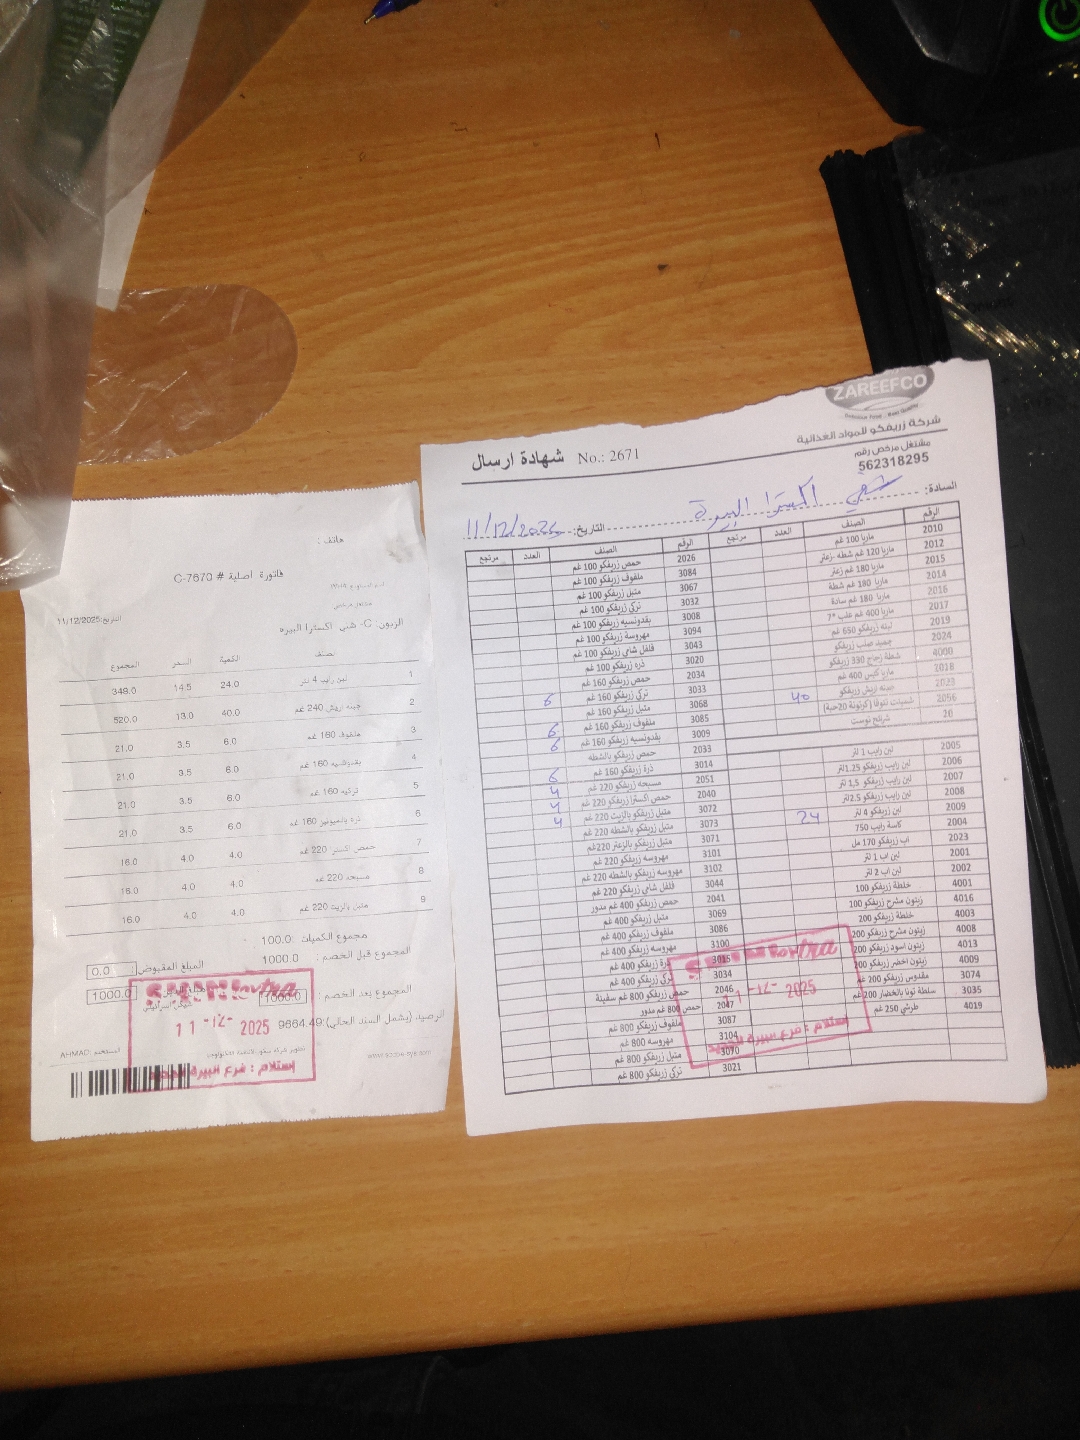 هاتف :
فاتورة اصلية # C-7670
مشتغل مرخص
التاريخ: 11/12/2025
الزبون: C- شني اكسترا البيره
الصنف الكمية السعر المجموع
1 لبن رايب 4 لتر 24.0 14.5 348.0
2 جبنه زريفكو 240 غم 40.0 13.0 520.0
3 ملفوف 160 غم 6.0 3.5 21.0
4 بقدونسيه 160 غم 6.0 3.5 21.0
5 تركيه 160 غم 6.0 3.5 21.0
6 ذرة بالمايونيز 160 غم 6.0 3.5 21.0
7 حمص اكسترا 220 غم 4.0 4.0 16.0
8 مسبحه 220 غم 4.0 4.0 16.0
9 متبل بالزيت 220 غم 4.0 4.0 16.0
مجموع الكميات : 100.0
المجموع قبل الخصم : 1000.0 المبلغ المقبوض : 0.0
المجموع بعد الخصم : 1000.0 1000.0
شيكل اسرائيلي
الرصيد (يشمل السند الحالي): 9664.49
المستخدم: AHMAD
Extra
11-12-2025
استلام : فرع البيرة الجديد
ZAREEFCO
شركة زريفكو للمواد الغذائية
مشتغل مرخص رقم
562318295
شهادة ارسال No.: 2671
السادة: اكسترا البيرة التاريخ: 11/12/2025
الرقم الصنف العدد مرتجع الرقم الصنف العدد مرتجع
2010 ماريا 100 غم 2026 حمص زريفكو 100 غم
2012 ماريا 120 غم شطه -زعتر 3084 ملفوف زريفكو 100 غم
2015 ماريا 180 غم زعتر 3067 متبل زريفكو 100 غم
2014 ماريا 180 غم شطة 3032 تركي زريفكو 100 غم
2016 ماريا 180 غم سادة 3008 بقدونسيه زريفكو 100 غم
2017 ماريا 400 غم علب 3094 مهروسة زريفكو 100 غم
2019 لبنه زريفكو 650 غم 3043 فلفل شامي زريفكو 100 غم
2024 جميد صلب زريفكو 3020 ذره زريفكو 100 غم
4000 شطة زجاج 330 زريفكو 2034 حمص زريفكو 160 غم
2018 ماريا كيس 400 غم 3033 تركي زريفكو 160 غم 6
جبنه زريفكو 40 3068 متبل زريفكو 160 غم
2056 شمينات تنوفا (كرتونة 20حبة) 3085 ملفوف زريفكو 160 غم 6
20 شرائح توست 3009 بقدونسيه زريفكو 160 غم 6
2033 حمص زريفكو بالشطه
2005 لبن رايب 1 لتر 3014 ذرة زريفكو 160 غم 6
2006 لبن رايب زريفكو 1.25لتر 2051 مسبحه زريفكو 220 غم 4
2007 لبن رايب زريفكو 1,5 لتر 2040 حمص اكسترا زريفكو 220 غم 4
2008 لبن رايب زريفكو 2.5لتر 3072 متبل زريفكو بالزيت 220 غم 4
2009 لبن زريفكو 4 لتر 24 3073 متبل زريفكو بالشطه 220 غم
2004 كاسة رايب 750 3071 متبل زريفكو بالزعتر 220غم
2023 اب زريفكو 170 مل 3101 مهروسه زريفكو 220 غم
2001 لبن اب 1 لتر 3102 مهروسه زريفكو بالشطه 220 غم
2002 لبن اب 2 لتر 3044 فلفل شامي زريفكو 220 غم
4001 خلطة زريفكو 100 2041 حمص زريفكو 400 غم مدور
4016 زيتون مشرح زريفكو 100 3069 متبل زريفكو 400 غم
4003 خلطة زريفكو 200 3086 ملفوف زريفكو 400 غم
4008 زيتون مشرح زريفكو 200 3100 مهروسه زريفكو 400 غم
4013 زيتون اسود زريفكو 200 3015 ذرة زريفكو 400 غم
4009 زيتون اخضر زريفكو 200 3034 تركي زريفكو 400 غم
3074 مقدوس زريفكو 200 غم 2046 حمص زريفكو 800 غم سفينة
3035 سلطة تونا بالخضار 200 غم 2047 حمص 800 غم مدور
4019 طرشي 250 غم 3087 ملفوف زريفكو 800 غم
3104 مهروسه 800 غم
3070 متبل زريفكو 800 غم
3021 تركي زريفكو 800 غم
Extra
11-12-2025
استلام : فرع البيرة الجديد